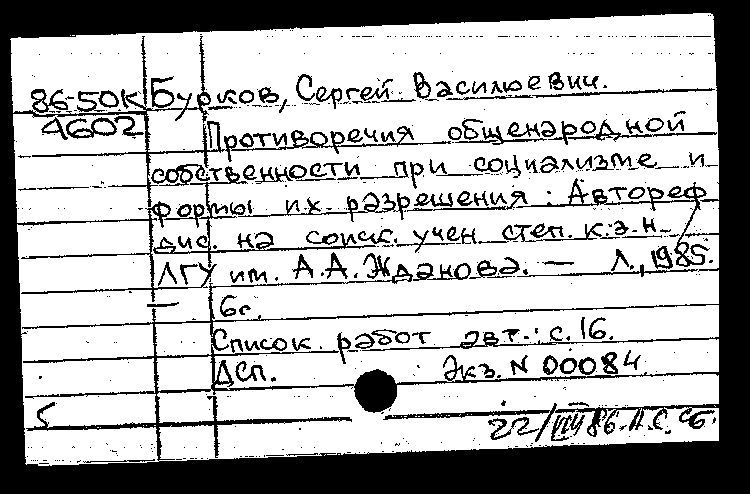 86-50К Бурков, Сергей Васильевич.
4602
Противоречия общенародной
собственности при социализме и
формы их разрешения : Автореф
дис. на соиск. учен. степ. к.э.н.
ЛГУ им. А.А. Жданова. — Л., 1985.
— 6с.
Список работ авт.: с. 16.
ДСП. Экз. N 00084
5
22/VIII 86.